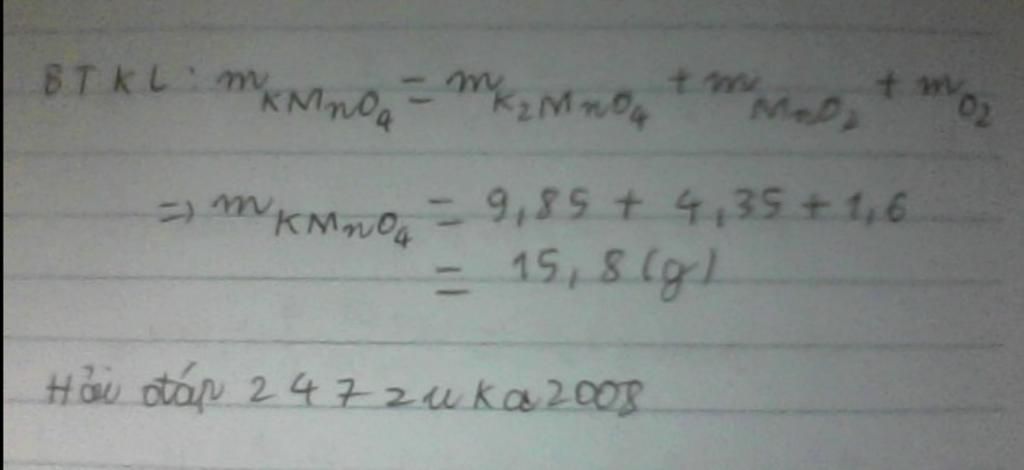 BTKL: mKMnO4 = mK2MnO4 + mMnO2 + mO2
=> mKMnO4 = 9,85 + 4,35 + 1,6
= 15,8 (g)
Hỏi đáp 247 zuka2008